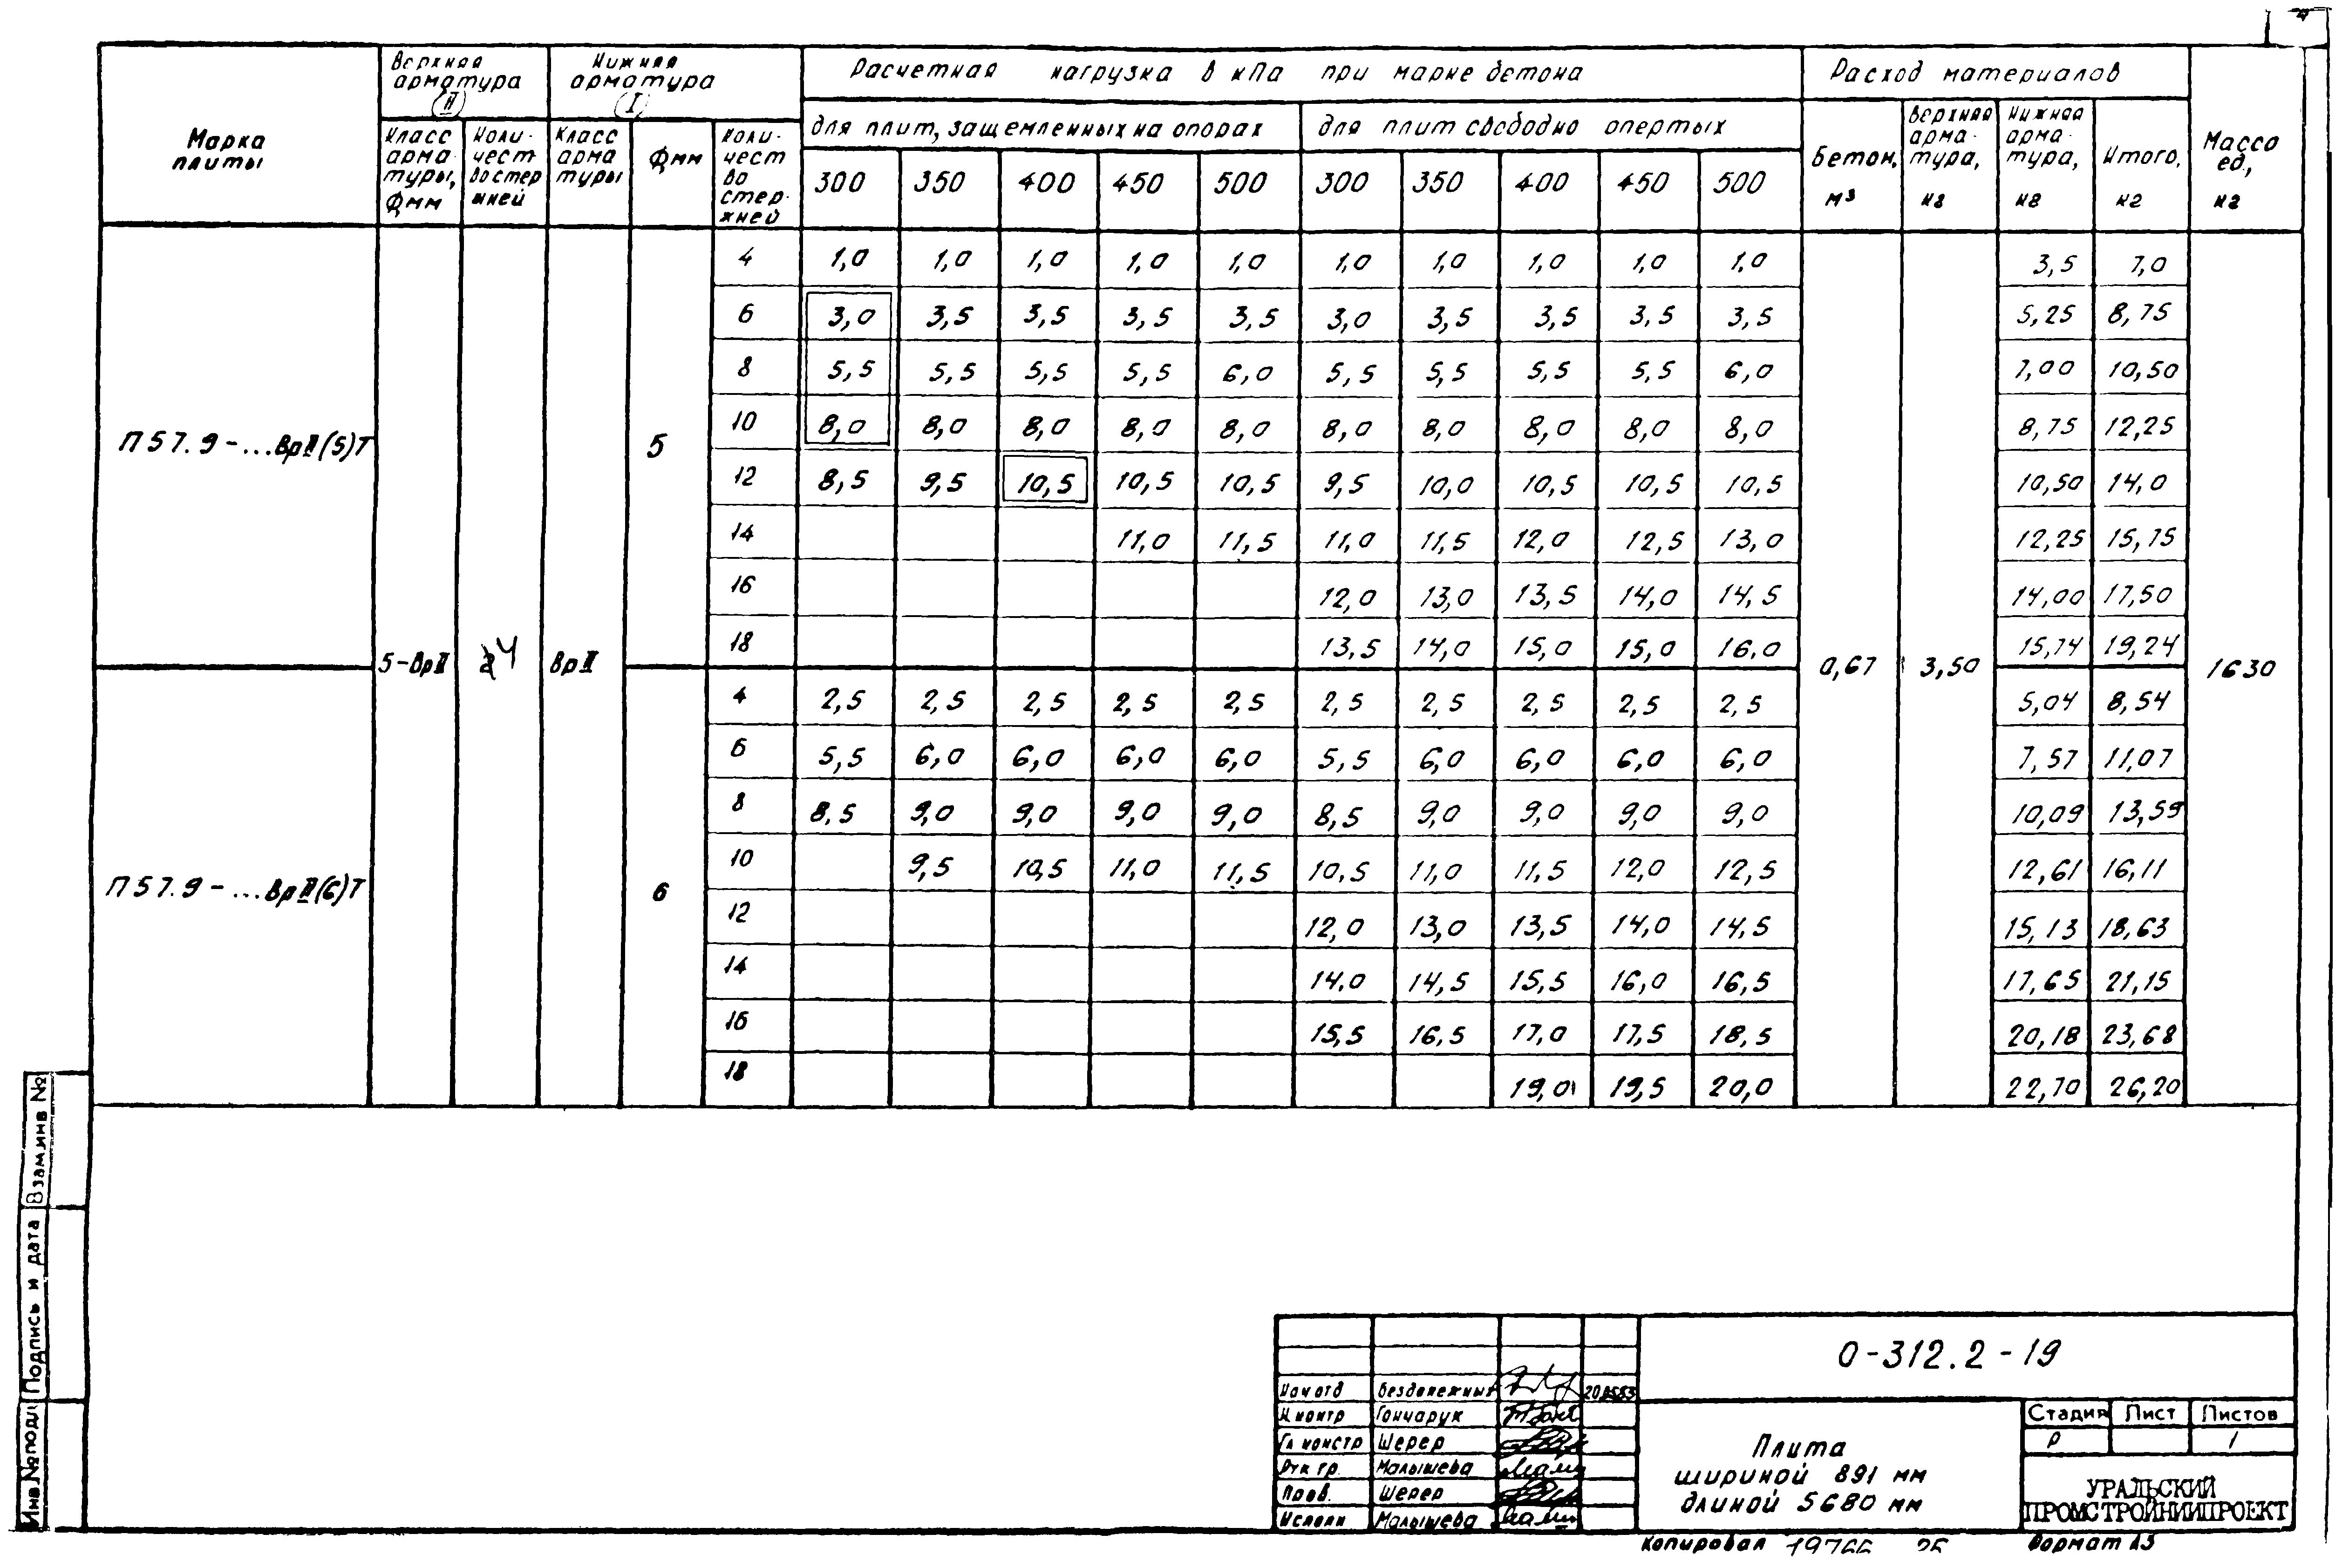 Марка плиты
Верхняя арматура (II)
Нижняя арматура (I)
Расчетная нагрузка в кПа при марке бетона
Расход материалов
Масса ед., кг
Класс арматуры, Фмм
Количество стержней
Класс арматуры
Фмм
Количество стержней
для плит, защемленных на опорах
для плит свободно опертых
Бетон, м³
Верхняя арматура, кг
Нижняя арматура, кг
Итого, кг
300 350 400 450 500 300 350 400 450 500
4 1,0 1,0 1,0 1,0 1,0 1,0 1,0 1,0 1,0 1,0 3,5 7,0
6 3,0 3,5 3,5 3,5 3,5 3,0 3,5 3,5 3,5 3,5 5,25 8,75
8 5,5 5,5 5,5 5,5 6,0 5,5 5,5 5,5 5,5 6,0 7,00 10,50
П57.9-...ВрII(5)Т 5 10 8,0 8,0 8,0 8,0 8,0 8,0 8,0 8,0 8,0 8,0 8,75 12,25
12 8,5 9,5 10,5 10,5 10,5 9,5 10,0 10,5 10,5 10,5 10,50 14,0
14 11,0 11,5 11,0 11,5 12,0 12,5 13,0 12,25 15,75
16 12,0 13,0 13,5 14,0 14,5 14,00 17,50
18 13,5 14,0 15,0 15,0 16,0 15,74 19,24
5-ВрII 4 ВрII 0,67 3,50 1630
4 2,5 2,5 2,5 2,5 2,5 2,5 2,5 2,5 2,5 2,5 5,04 8,54
6 5,5 6,0 6,0 6,0 6,0 5,5 6,0 6,0 6,0 6,0 7,57 11,07
8 8,5 9,0 9,0 9,0 9,0 8,5 9,0 9,0 9,0 9,0 10,09 13,59
10 9,5 10,5 11,0 11,5 10,5 11,0 11,5 12,0 12,5 12,61 16,11
П57.9-...ВрII(6)Т 6 12 12,0 13,0 13,5 14,0 14,5 15,13 18,63
14 14,0 14,5 15,5 16,0 16,5 17,65 21,15
16 15,5 16,5 17,0 17,5 18,5 20,18 23,68
18 19,0 19,5 20,0 22,70 26,20
Взам.инв №
Подпись и дата
Инв.№ подл
О-312.2-19
Нач отд
Н контр Гончарук
Гл констр Шерер
Рук гр. Малышева
Пров. Шерер
Исполн Малышева
Плита
шириной 891 мм
длиной 5680 мм
Стадия Лист Листов
Р 1
УРАЛЬСКИЙ
ПРОМСТРОЙНИИПРОЕКТ
Копировал 19766 25 Формат А3